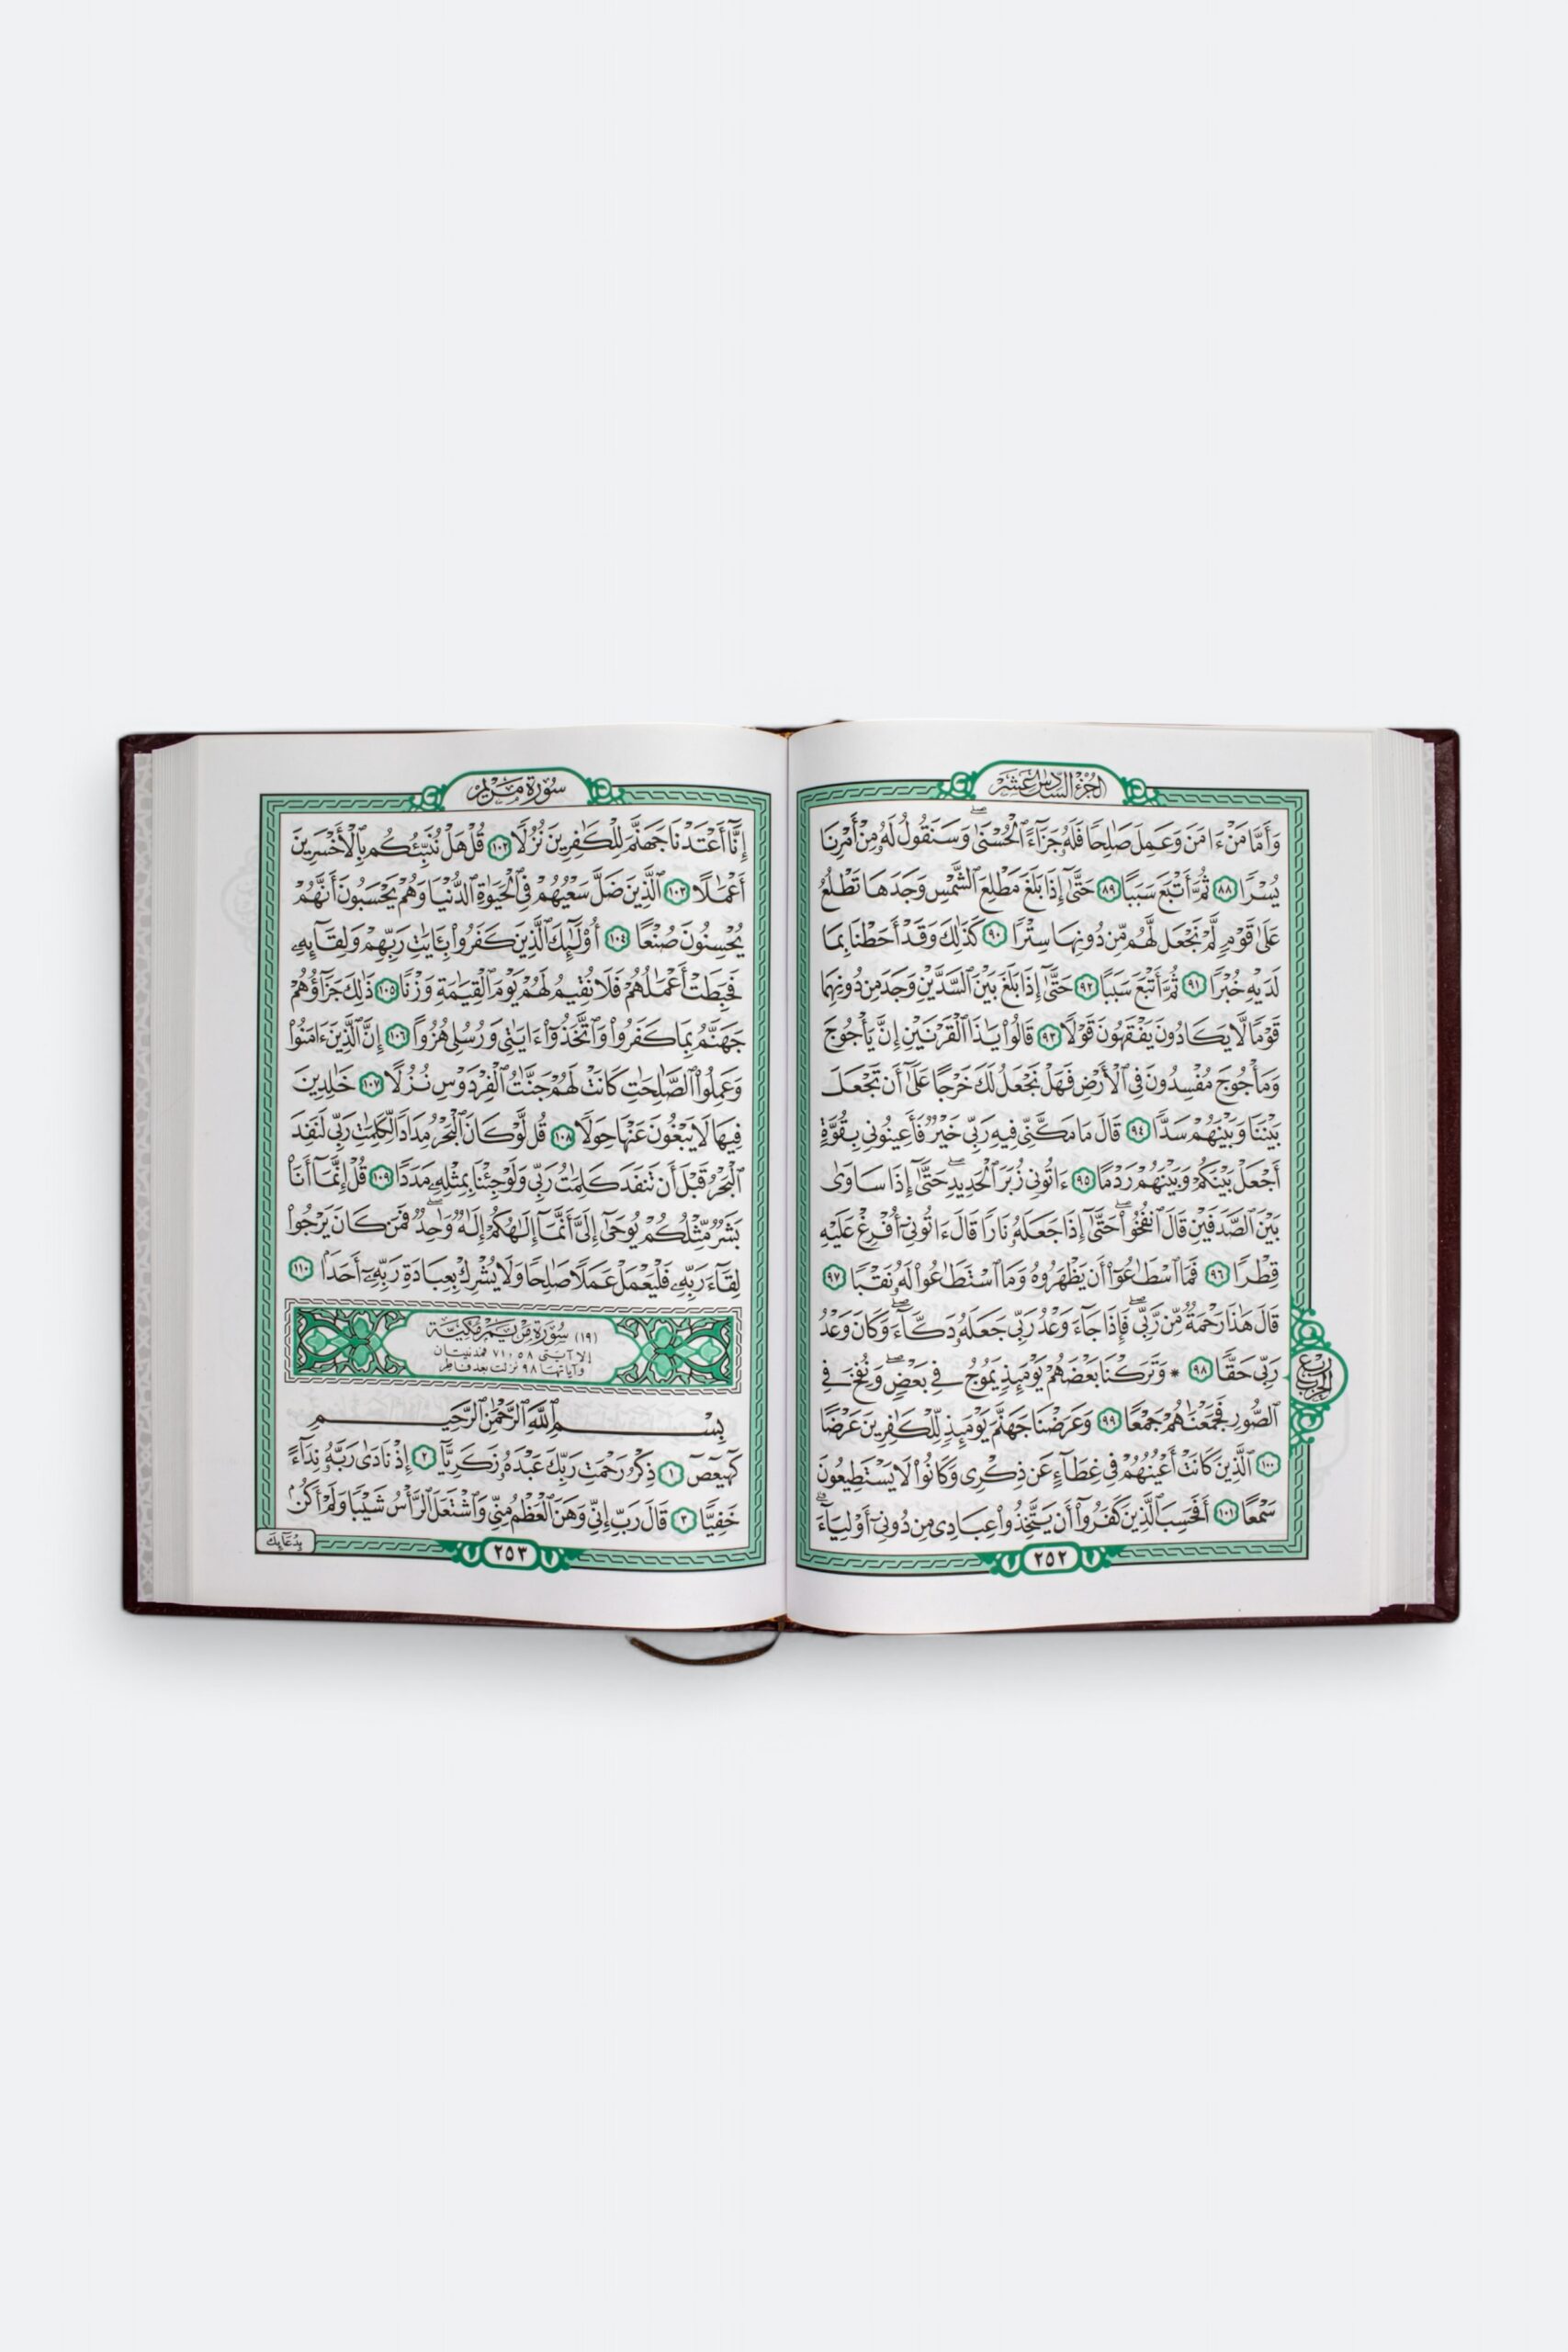 الجزء السادس عشر
وَأَمَّا مَنْ ءَامَنَ وَعَمِلَ صَٰلِحًا فَلَهُۥ جَزَآءً ٱلْحُسْنَىٰ ۖ وَسَنَقُولُ لَهُۥ مِنْ أَمْرِنَا
يُسْرًا ٨٨ ثُمَّ أَتْبَعَ سَبَبًا ٨٩ حَتَّىٰٓ إِذَا بَلَغَ مَطْلِعَ ٱلشَّمْسِ وَجَدَهَا تَطْلُعُ
عَلَىٰ قَوْمٍ لَّمْ نَجْعَل لَّهُم مِّن دُونِهَا سِتْرًا ٩٠ كَذَٰلِكَ وَقَدْ أَحَطْنَا بِمَا
لَدَيْهِ خُبْرًا ٩١ ثُمَّ أَتْبَعَ سَبَبًا ٩٢ حَتَّىٰٓ إِذَا بَلَغَ بَيْنَ ٱلسَّدَّيْنِ وَجَدَ مِن دُونِهِمَا
قَوْمًا لَّا يَكَادُونَ يَفْقَهُونَ قَوْلًا ٩٣ قَالُوا۟ يَٰذَا ٱلْقَرْنَيْنِ إِنَّ يَأْجُوجَ
وَمَأْجُوجَ مُفْسِدُونَ فِى ٱلْأَرْضِ فَهَلْ نَجْعَلُ لَكَ خَرْجًا عَلَىٰٓ أَن تَجْعَلَ
بَيْنَنَا وَبَيْنَهُمْ سَدًّا ٩٤ قَالَ مَا مَكَّنِّى فِيهِ رَبِّى خَيْرٌ فَأَعِينُونِى بِقُوَّةٍ
أَجْعَلْ بَيْنَكُمْ وَبَيْنَهُمْ رَدْمًا ٩٥ ءَاتُونِى زُبَرَ ٱلْحَدِيدِ ۖ حَتَّىٰٓ إِذَا سَاوَىٰ
بَيْنَ ٱلصَّدَفَيْنِ قَالَ ٱنفُخُوا۟ ۖ حَتَّىٰٓ إِذَا جَعَلَهُۥ نَارًا قَالَ ءَاتُونِىٓ أُفْرِغْ عَلَيْهِ
قِطْرًا ٩٦ فَمَا ٱسْطَٰعُوٓا۟ أَن يَظْهَرُوهُ وَمَا ٱسْتَطَٰعُوا۟ لَهُۥ نَقْبًا ٩٧
قَالَ هَٰذَا رَحْمَةٌ مِّن رَّبِّى ۖ فَإِذَا جَآءَ وَعْدُ رَبِّى جَعَلَهُۥ دَكَّآءَ ۖ وَكَانَ وَعْدُ
رَبِّى حَقًّا ٩٨ * وَتَرَكْنَا بَعْضَهُمْ يَوْمَئِذٍ يَمُوجُ فِى بَعْضٍ ۖ وَنُفِخَ فِى
ٱلصُّورِ فَجَمَعْنَٰهُمْ جَمْعًا ٩٩ وَعَرَضْنَا جَهَنَّمَ يَوْمَئِذٍ لِّلْكَٰفِرِينَ عَرْضًا
١٠٠ ٱلَّذِينَ كَانَتْ أَعْيُنُهُمْ فِى غِطَآءٍ عَن ذِكْرِى وَكَانُوا۟ لَا يَسْتَطِيعُونَ
سَمْعًا ١٠١ أَفَحَسِبَ ٱلَّذِينَ كَفَرُوٓا۟ أَن يَتَّخِذُوا۟ عِبَادِى مِن دُونِىٓ أَوْلِيَآءَ ۚ
ربع
الحزب
٢٥٢
سورة مريم
إِنَّآ أَعْتَدْنَا جَهَنَّمَ لِلْكَٰفِرِينَ نُزُلًا ١٠٢ قُلْ هَلْ نُنَبِّئُكُم بِٱلْأَخْسَرِينَ
أَعْمَٰلًا ١٠٣ ٱلَّذِينَ ضَلَّ سَعْيُهُمْ فِى ٱلْحَيَوٰةِ ٱلدُّنْيَا وَهُمْ يَحْسَبُونَ أَنَّهُمْ
يُحْسِنُونَ صُنْعًا ١٠٤ أُو۟لَٰٓئِكَ ٱلَّذِينَ كَفَرُوا۟ بِـَٔايَٰتِ رَبِّهِمْ وَلِقَآئِهِۦ
فَحَبِطَتْ أَعْمَٰلُهُمْ فَلَا نُقِيمُ لَهُمْ يَوْمَ ٱلْقِيَٰمَةِ وَزْنًا ١٠٥ ذَٰلِكَ جَزَآؤُهُمْ
جَهَنَّمُ بِمَا كَفَرُوا۟ وَٱتَّخَذُوٓا۟ ءَايَٰتِى وَرُسُلِى هُزُوًا ١٠٦ إِنَّ ٱلَّذِينَ ءَامَنُوا۟
وَعَمِلُوا۟ ٱلصَّٰلِحَٰتِ كَانَتْ لَهُمْ جَنَّٰتُ ٱلْفِرْدَوْسِ نُزُلًا ١٠٧ خَٰلِدِينَ
فِيهَا لَا يَبْغُونَ عَنْهَا حِوَلًا ١٠٨ قُل لَّوْ كَانَ ٱلْبَحْرُ مِدَادًا لِّكَلِمَٰتِ رَبِّى لَنَفِدَ
ٱلْبَحْرُ قَبْلَ أَن تَنفَدَ كَلِمَٰتُ رَبِّى وَلَوْ جِئْنَا بِمِثْلِهِۦ مَدَدًا ١٠٩ قُلْ إِنَّمَآ أَنَا۠
بَشَرٌ مِّثْلُكُمْ يُوحَىٰٓ إِلَىَّ أَنَّمَآ إِلَٰهُكُمْ إِلَٰهٌ وَٰحِدٌ ۖ فَمَن كَانَ يَرْجُوا۟
لِقَآءَ رَبِّهِۦ فَلْيَعْمَلْ عَمَلًا صَٰلِحًا وَلَا يُشْرِكْ بِعِبَادَةِ رَبِّهِۦٓ أَحَدًۢا ١١٠
(١٩) سورة مريم مكية
إلا آيتى ٥٨ و ٧١ فمدنيتان
وآياتها ٩٨ نزلت بعد فاطر
بِسْمِ ٱللَّهِ ٱلرَّحْمَٰنِ ٱلرَّحِيمِ
كٓهيعٓصٓ ١ ذِكْرُ رَحْمَتِ رَبِّكَ عَبْدَهُۥ زَكَرِيَّآ ٢ إِذْ نَادَىٰ رَبَّهُۥ نِدَآءً
خَفِيًّا ٣ قَالَ رَبِّ إِنِّى وَهَنَ ٱلْعَظْمُ مِنِّى وَٱشْتَعَلَ ٱلرَّأْسُ شَيْبًا وَلَمْ أَكُنۢ
بِدُعَآئِكَ
٢٥٣